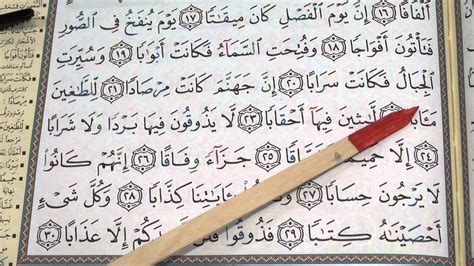 أَلْفَافًا ١٦ إِنَّ يَوْمَ ٱلْفَصْلِ كَانَ مِيقَٰتًا ١٧ يَوْمَ يُنفَخُ فِي ٱلصُّورِ
فَتَأْتُونَ أَفْوَاجًا ١٨ وَفُتِحَتِ ٱلسَّمَآءُ فَكَانَتْ أَبْوَٰبًا ١٩ وَسُيِّرَتِ
ٱلْجِبَالُ فَكَانَتْ سَرَابًا ٢٠ إِنَّ جَهَنَّمَ كَانَتْ مِرْصَادًا ٢١ لِّلطَّٰغِينَ
مَـَٔابًا ٢٢ لَّٰبِثِينَ فِيهَآ أَحْقَابًا ٢٣ لَّا يَذُوقُونَ فِيهَا بَرْدًا وَلَا شَرَابًا
٢٤ إِلَّا حَمِيمًا ٢٥ جَزَآءً وِفَاقًا ٢٦ إِنَّهُمْ كَانُوا۟
لَا يَرْجُونَ حِسَابًا ٢٧ بِـَٔايَٰتِنَا كِذَّابًا ٢٨ وَكُلَّ شَيْءٍ
أَحْصَيْنَٰهُ كِتَٰبًا ٢٩ فَذُوقُوا۟ فَلَن إِلَّا عَذَابًا ٣٠